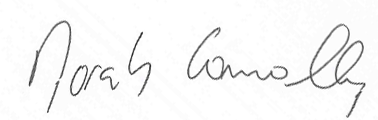 Norah Connolly